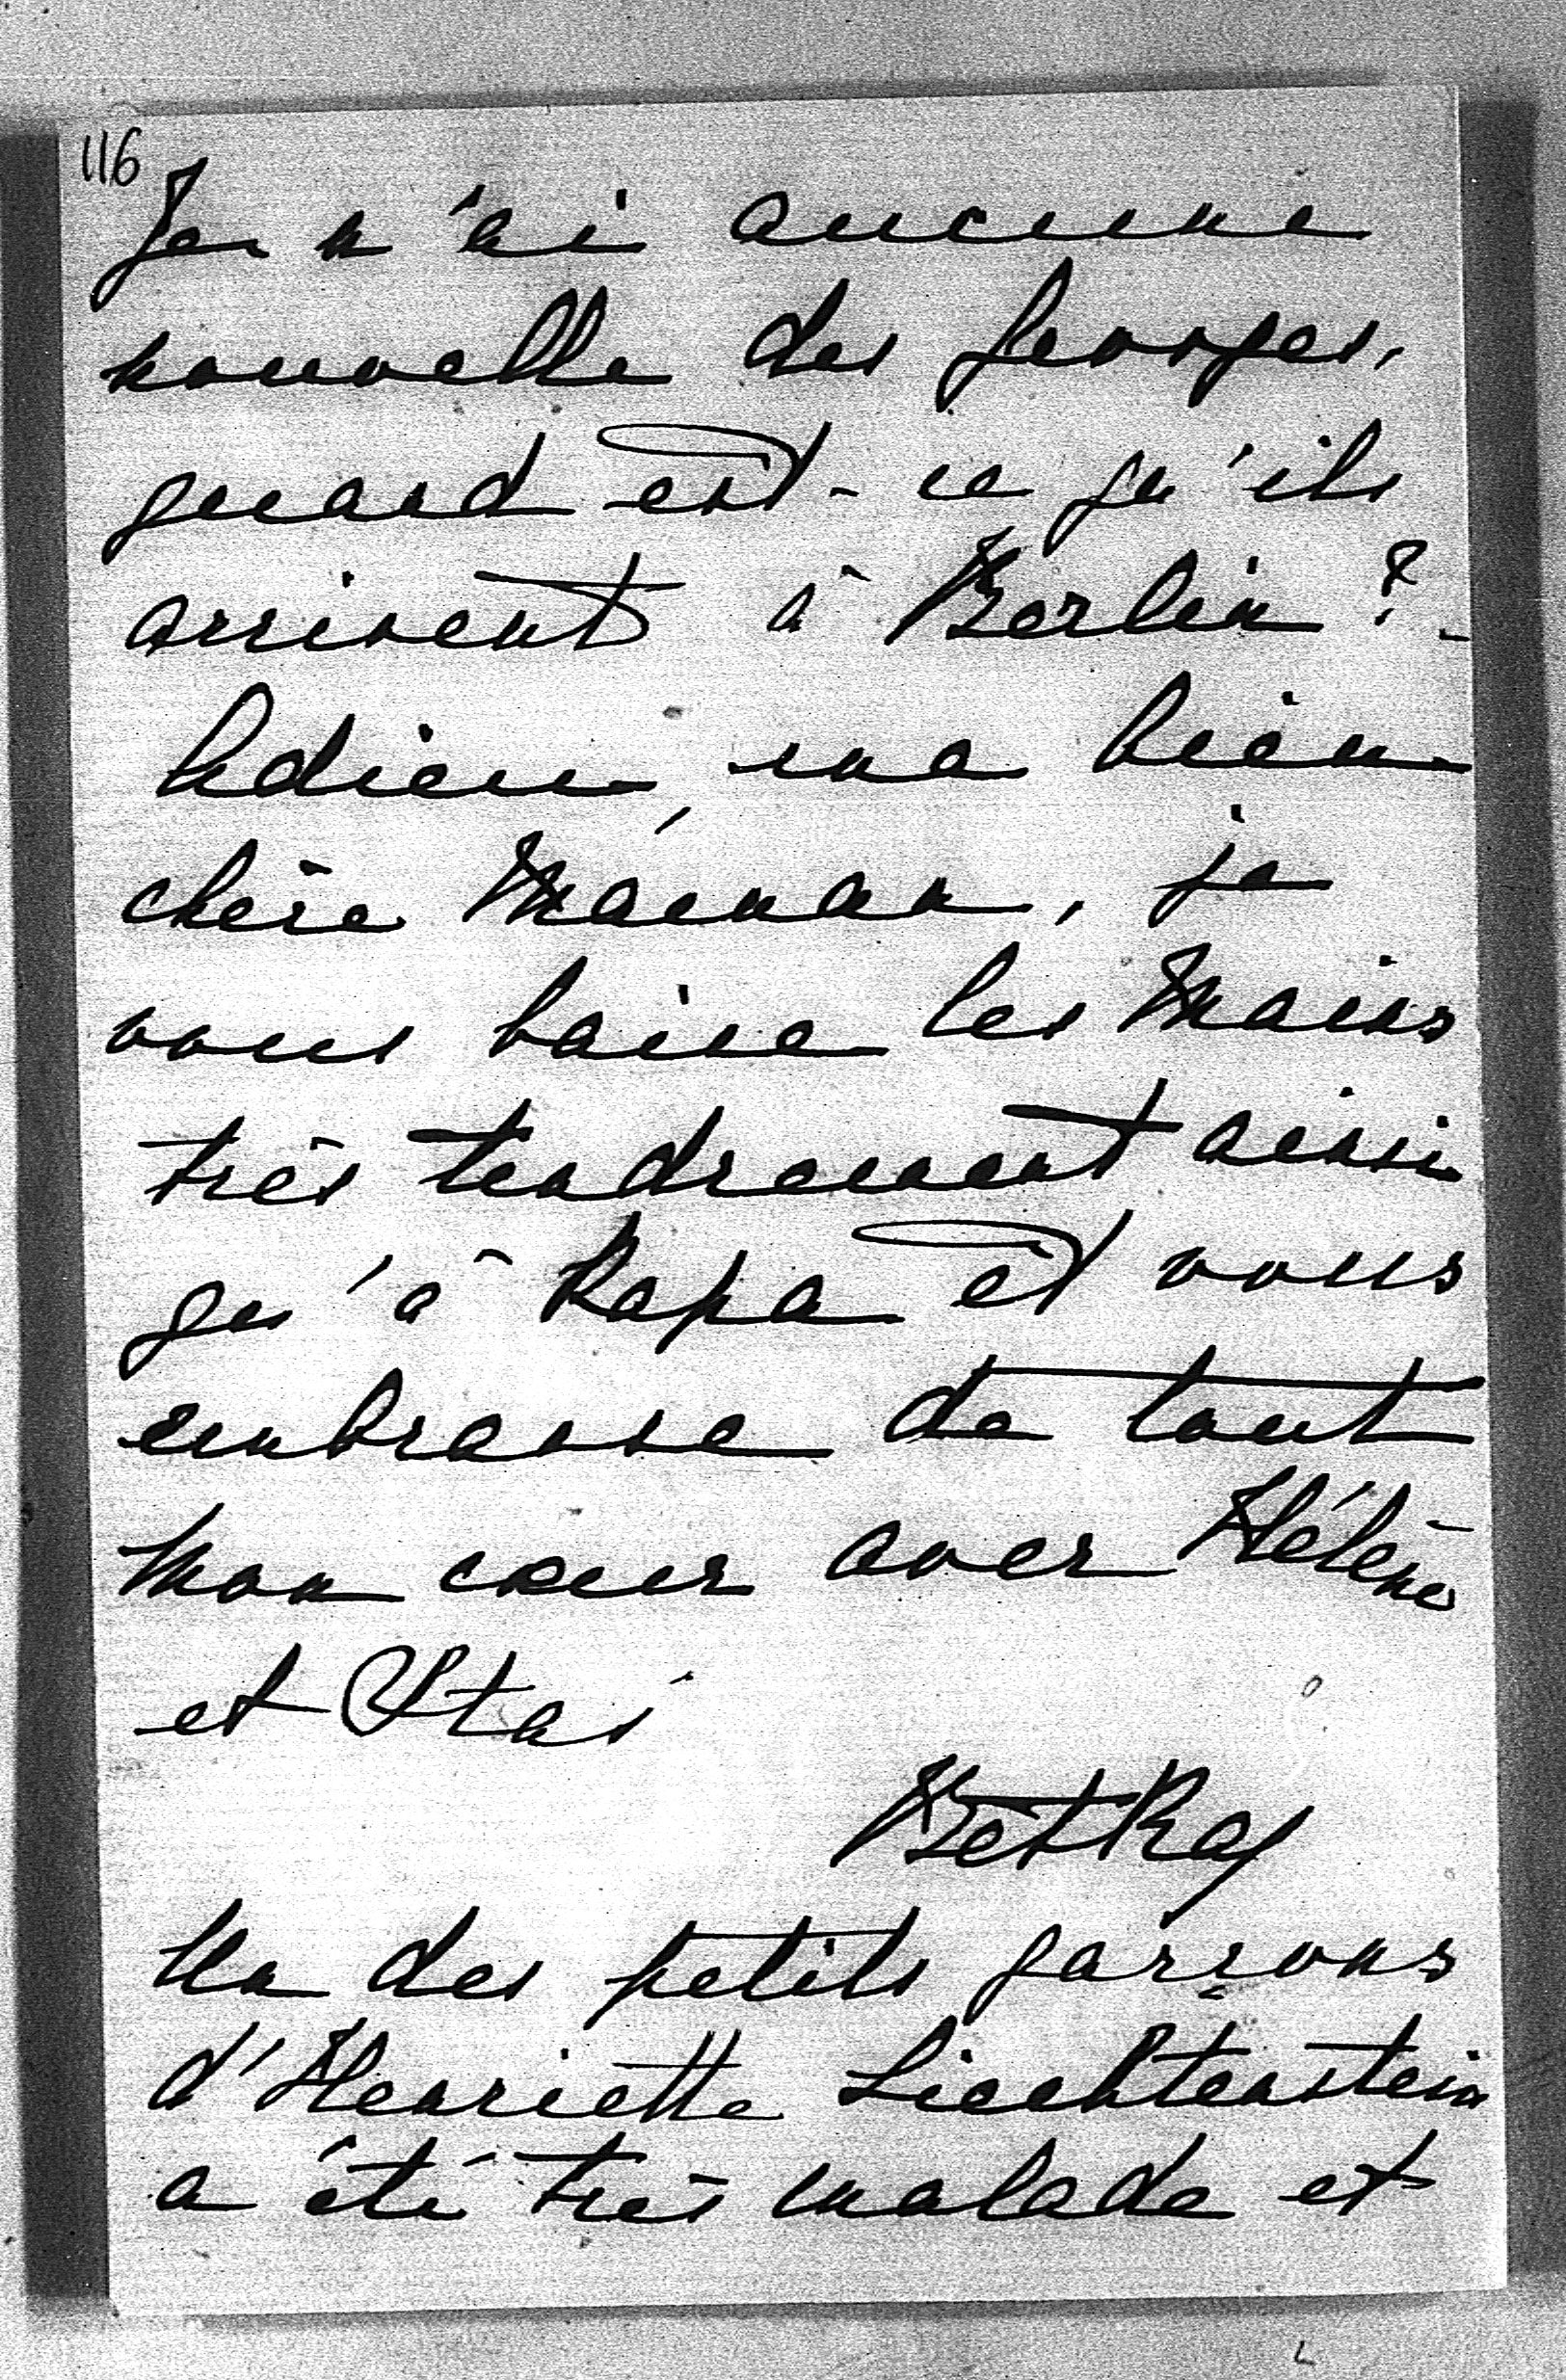 116
Je n'ai aucune
nouvelle des Georges,
quand est-ce qu'ils
arrivent à Berlin ?
Adieu, ma bien
chère Máman, je
vous baise les mains
très tendrement ainsi
qu'à Papa et vous
embrasse de tout
mon cœur avec Hélène
et Stas
BetKa
Un des petits garçons
d'Henriette Liechtenstein
a été très malade et